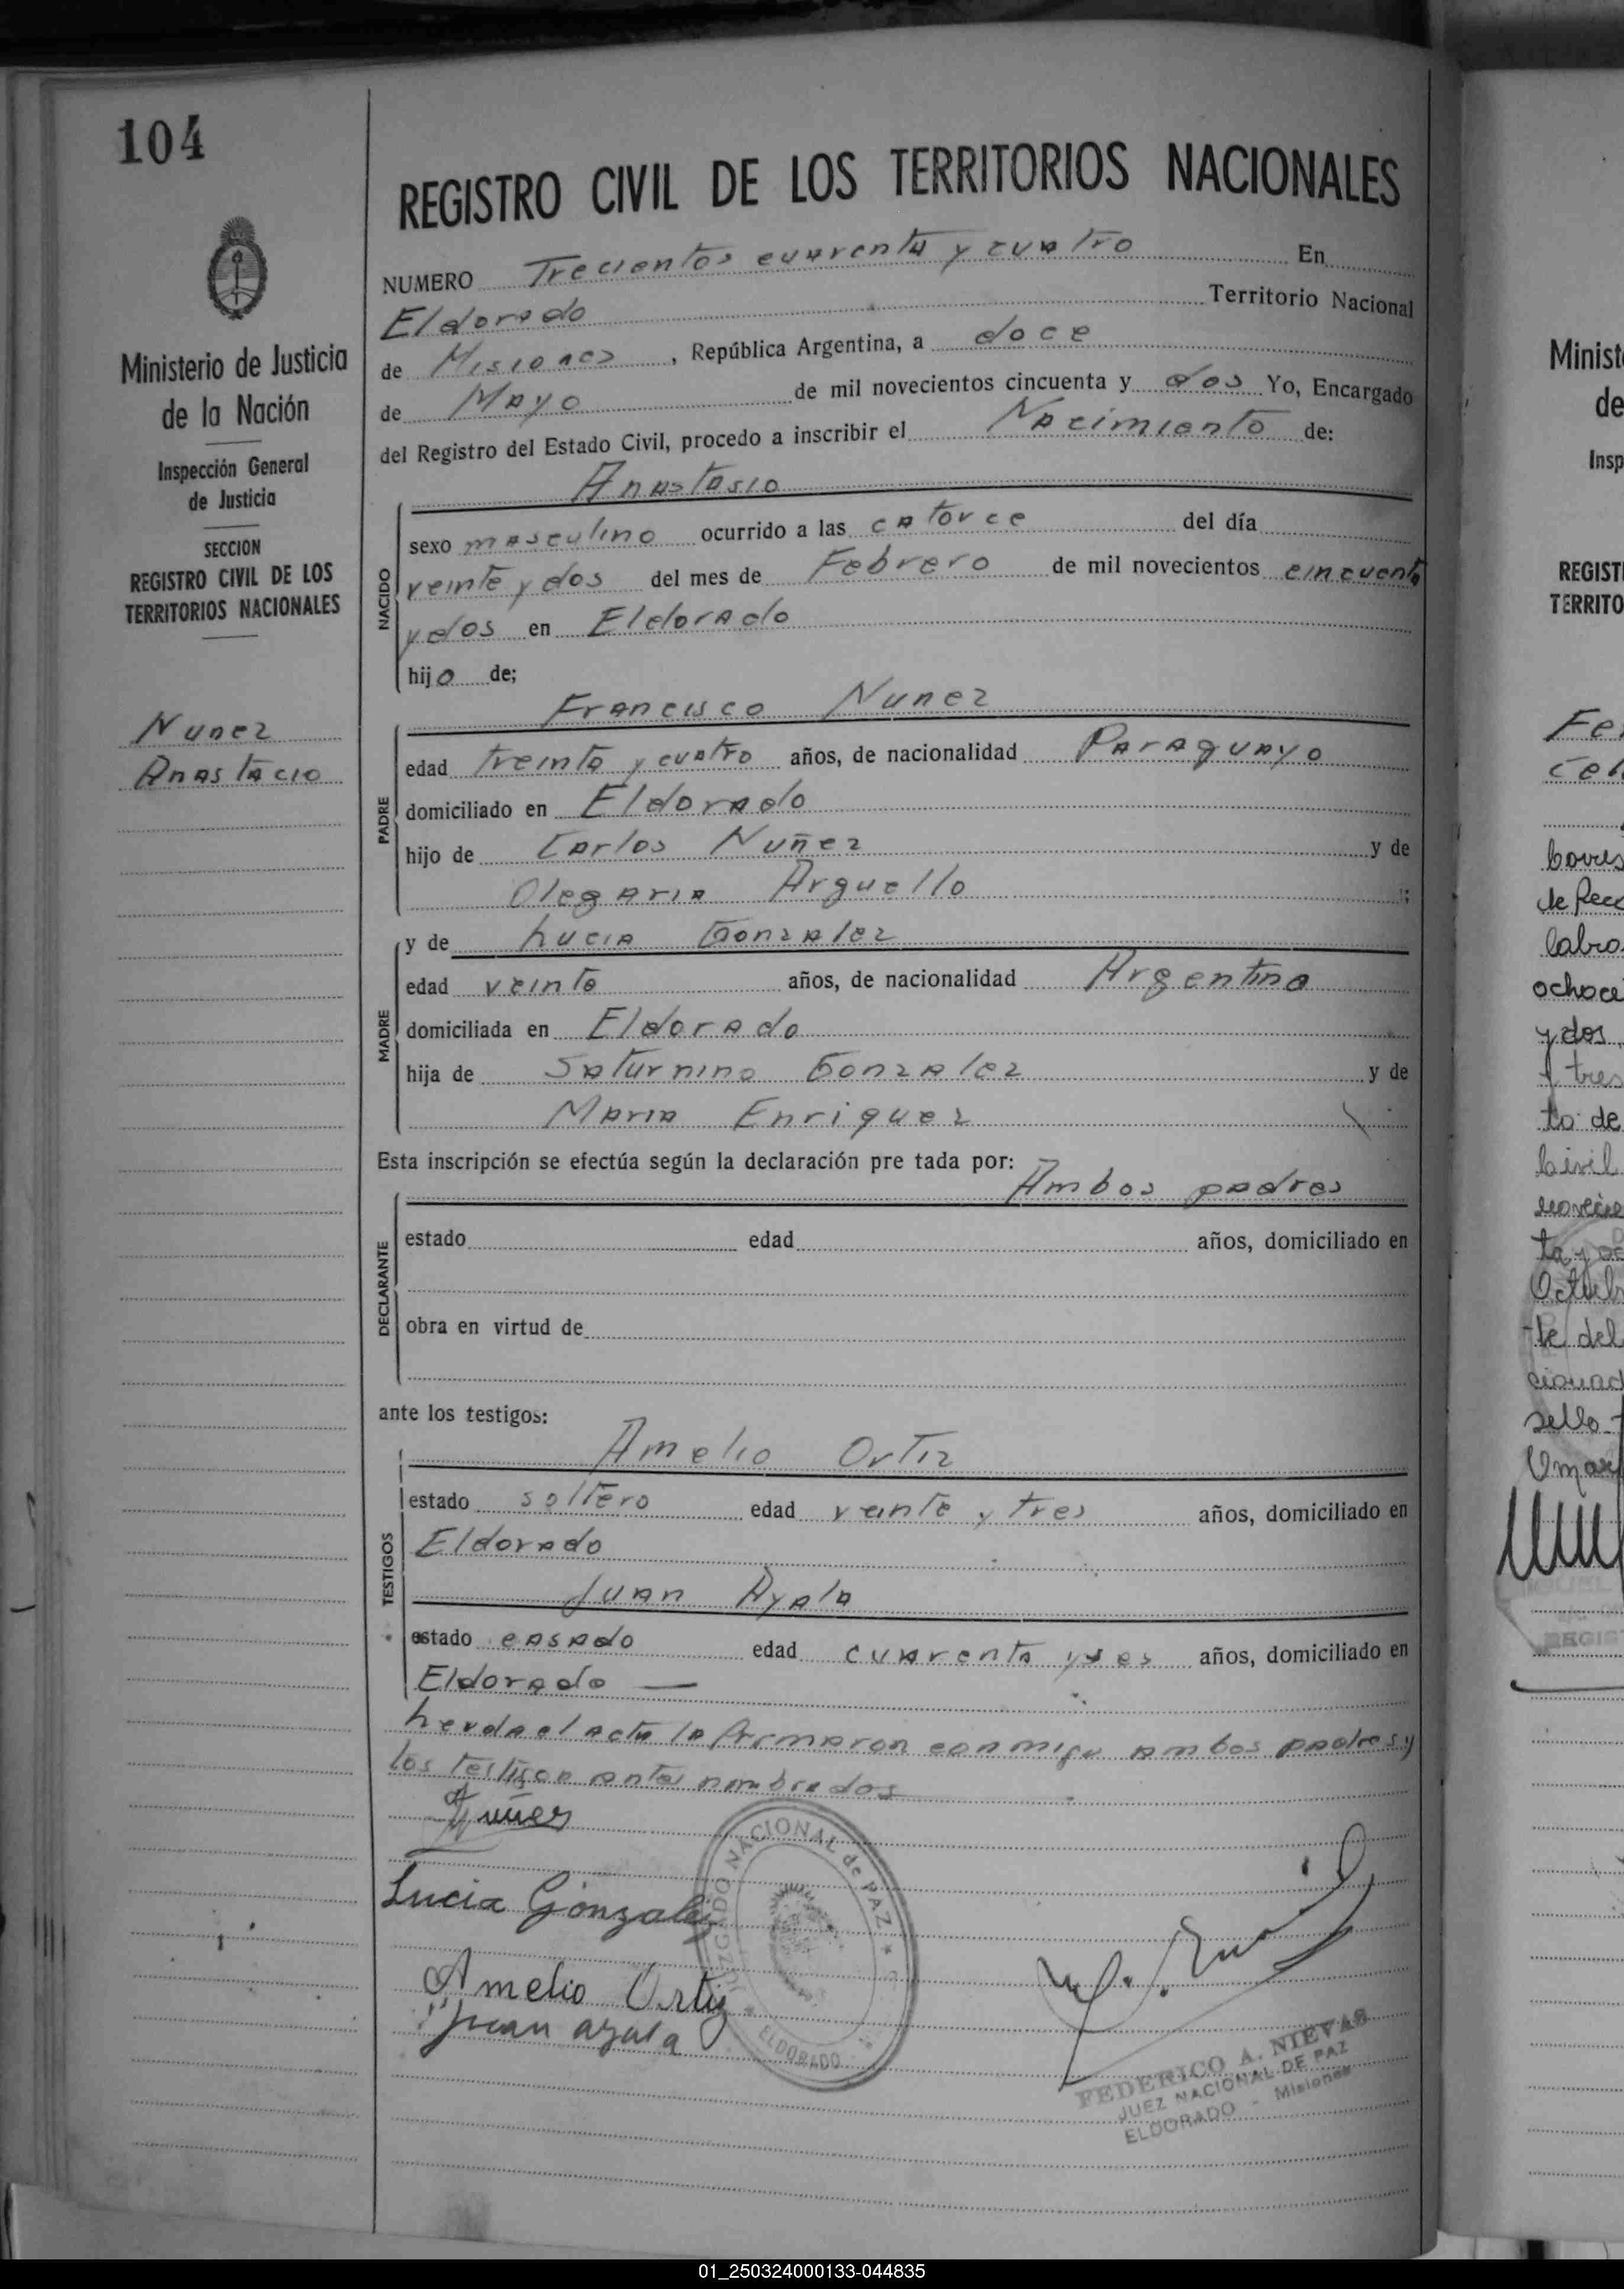 104
Ministerio de Justicia
de la Nación
Inspección General
de Justicia
SECCION
REGISTRO CIVIL DE LOS
TERRITORIOS NACIONALES
Nunez
Anastacio
REGISTRO CIVIL DE LOS TERRITORIOS NACIONALES
NUMERO Trecientos cuarenta y cuatro En
Eldorado Territorio Nacional
de Misiones, República Argentina, a doce
de Mayo de mil novecientos cincuenta y dos Yo, Encargado
del Registro del Estado Civil, procedo a inscribir el Nacimiento de:
Anastasio
NACIDO
sexo masculino ocurrido a las catorce del día
veinte y dos del mes de Febrero de mil novecientos cincuenta
y dos en Eldorado
hijo de;
Francisco Nunez
PADRE
edad treinta y cuatro años, de nacionalidad Paraguayo
domiciliado en Eldorado
hijo de Carlos Nuñez y de
Olegaria Arguello ;
y de Lucia Gonzalez
MADRE
edad veinte años, de nacionalidad Argentina
domiciliada en Eldorado
hija de Saturnino Gonzalez y de
Maria Enriquez
Esta inscripción se efectúa según la declaración pre tada por:
Ambos padres
DECLARANTE
estado edad años, domiciliado en
obra en virtud de
ante los testigos:
Amelio Ortiz
TESTIGOS
estado soltero edad veinte y tres años, domiciliado en
Eldorado
Juan Ayala
estado casado edad cuarenta y años, domiciliado en
Eldorado —
el acta la firmaron conmigo ambos padres y
los antes nombrados
Nuñez
Lucia Gonzalez
Amelio Ortiz
Juan ayala
JUZGADO NACIONAL de PAZ
ELDORADO
FEDERICO A. NIEVAS
JUEZ NACIONAL DE PAZ
ELDORADO - Misiones
Minist
de
Insp
REGIST
TERRITO
Fe
Cel
de Rec
labra
ochoci
y dos
y tres
to de
te del
sello
Omar
REGIS
01_250324000133-044835